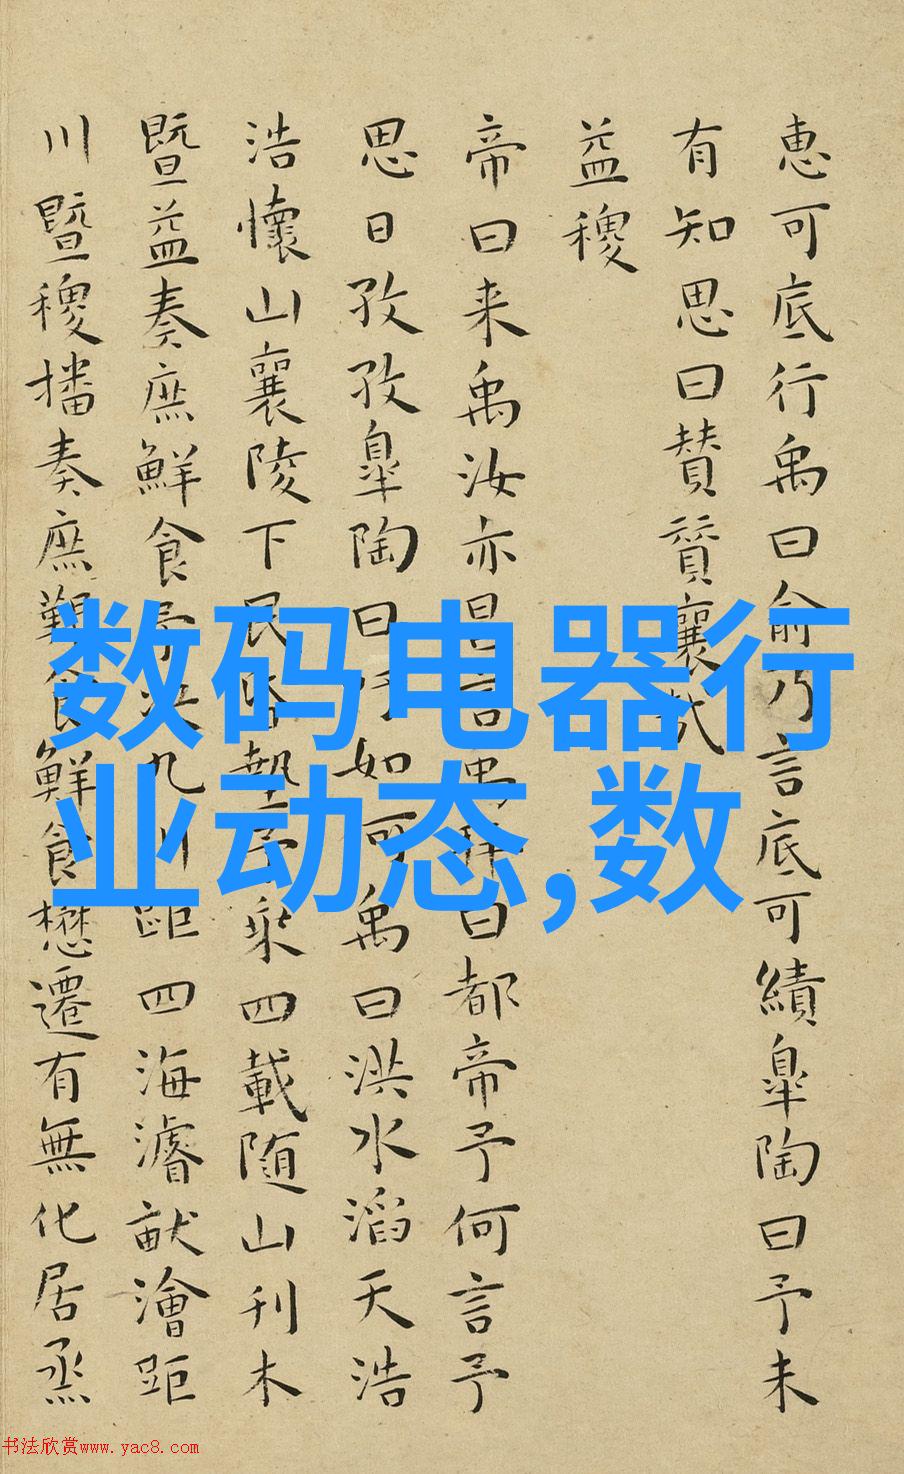 惠可底行禹曰俞乃言底可績皐陶曰予未
有知思曰贊贊襄哉
益稷
帝曰来禹汝亦昌言禹拜曰都帝予何言予
思日孜孜皐陶曰吁如何禹曰洪水滔天浩
浩懷山襄陵下民昏墊予乘四載随山刊木
暨益奏庶鮮食予决九川距四海濬畎澮距
川暨稷播奏庶艱食鮮食懋遷有無化居烝
数码电器行
业动态,数
书法欣赏www.yac8.com